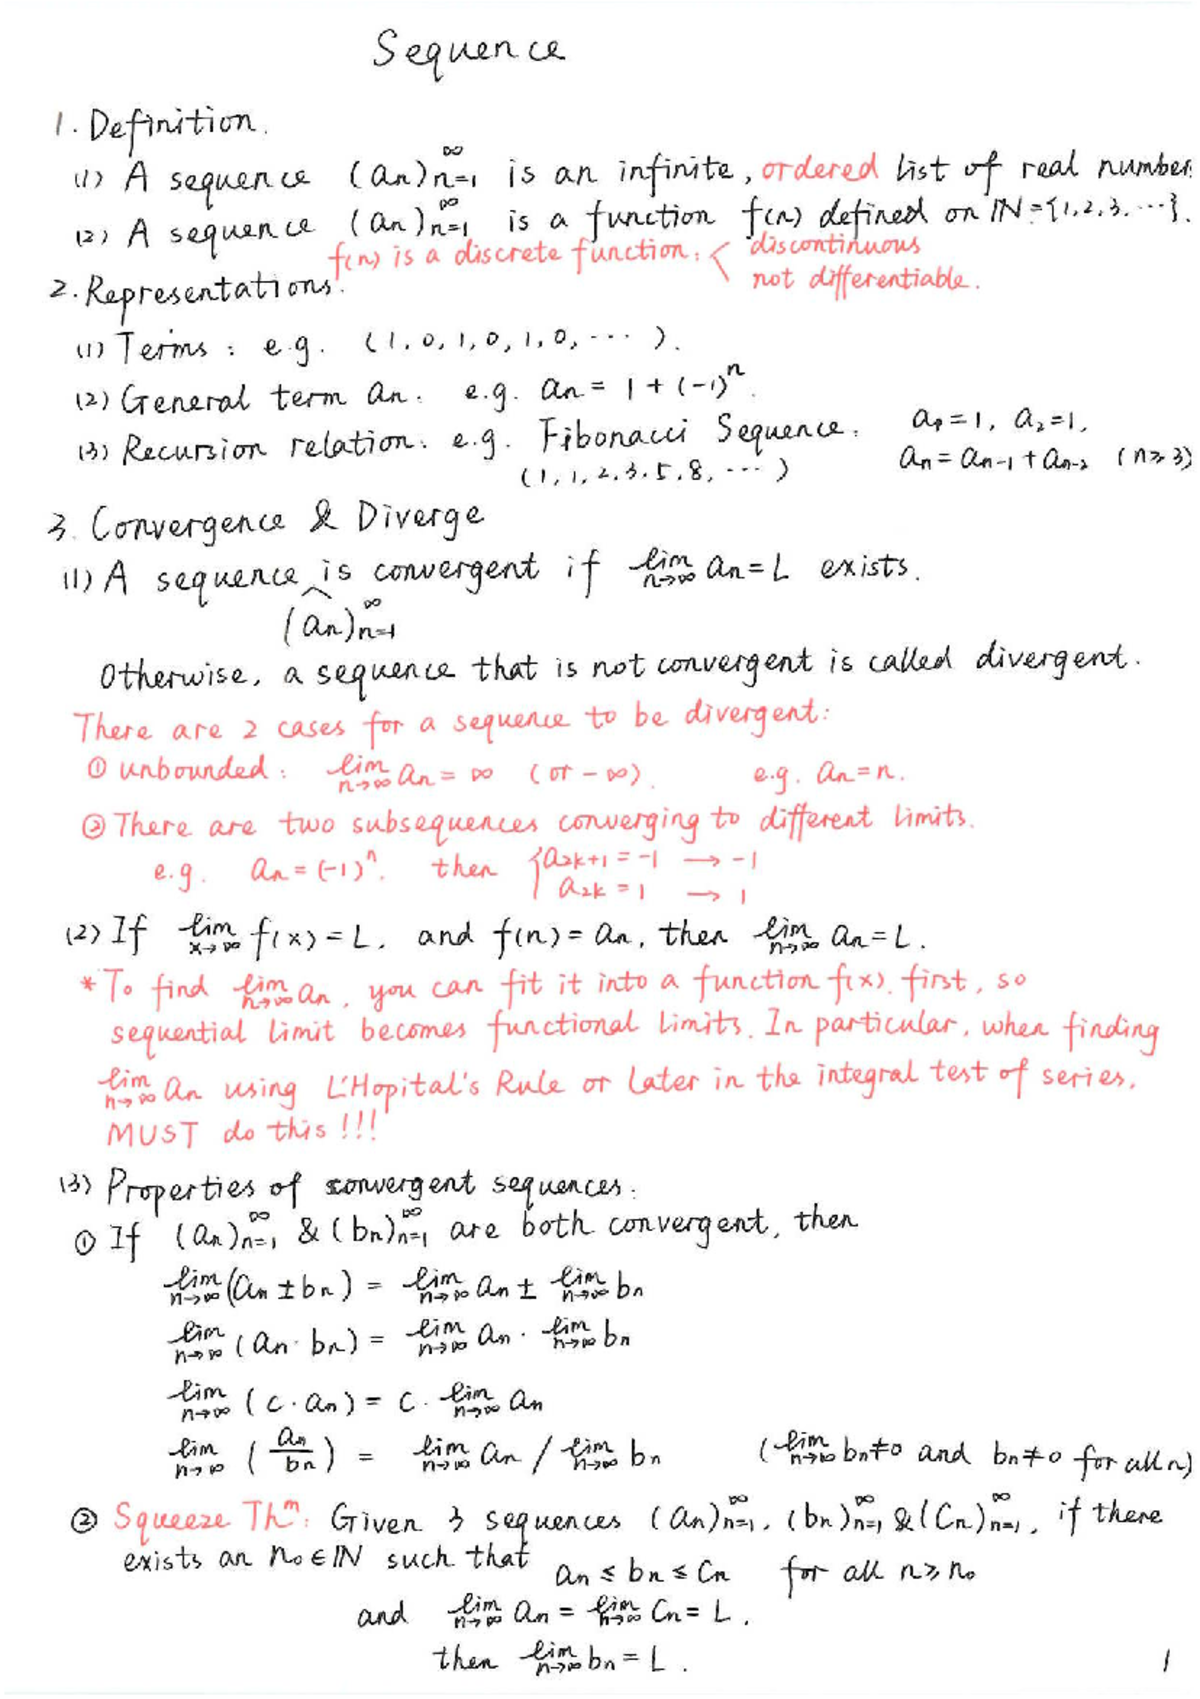 Sequence
1. Definition.
(1) A sequence (an)∞n=1 is an infinite, ordered list of real number.
(2) A sequence (an)∞n=1 is a function f(n) defined on IN={1,2,3,⋯}.
f(n) is a discrete function. < discontinuous
not differentiable.
2. Representations.
(1) Terms: e.g. (1,0,1,0,1,0,⋯).
(2) General term an. e.g. an = 1+(-1)^n.
(3) Recursion relation. e.g. Fibonacci Sequence. a1=1, a2=1,
(1,1,2,3,5,8,⋯) an=an-1+an-2 (n≥3)
3. Convergence & Diverge
(1) A sequence is convergent if lim n→∞ an=L exists.
(an)∞n=1
Otherwise, a sequence that is not convergent is called divergent.
There are 2 cases for a sequence to be divergent:
① unbounded: lim n→∞ an = ∞ (or -∞). e.g. an=n.
② There are two subsequences converging to different limits.
e.g. an=(-1)^n. then { a2k+1 = -1 → -1
a2k = 1 → 1
(2) If lim x→∞ f(x)=L, and f(n)=an, then lim n→∞ an=L.
*To find lim n→∞ an, you can fit it into a function f(x) first, so
sequential limit becomes functional limits. In particular, when finding
lim n→∞ an using L'Hopital's Rule or later in the integral test of series.
MUST do this!!!
(3) Properties of convergent sequences.
① If (an)∞n=1 & (bn)∞n=1 are both convergent, then
lim n→∞ (an ± bn) = lim n→∞ an ± lim n→∞ bn
lim n→∞ (an · bn) = lim n→∞ an · lim n→∞ bn
lim n→∞ (c · an) = c · lim n→∞ an
lim n→∞ (an/bn) = lim n→∞ an / lim n→∞ bn (lim n→∞ bn≠0 and bn≠0 for all n)
② Squeeze Thm: Given 3 sequences (an)∞n=1, (bn)∞n=1 & (Cn)∞n=1, if there
exists an n0∈IN such that an ≤ bn ≤ Cn for all n≥n0
and lim n→∞ an = lim n→∞ Cn = L.
then lim n→∞ bn = L.
1